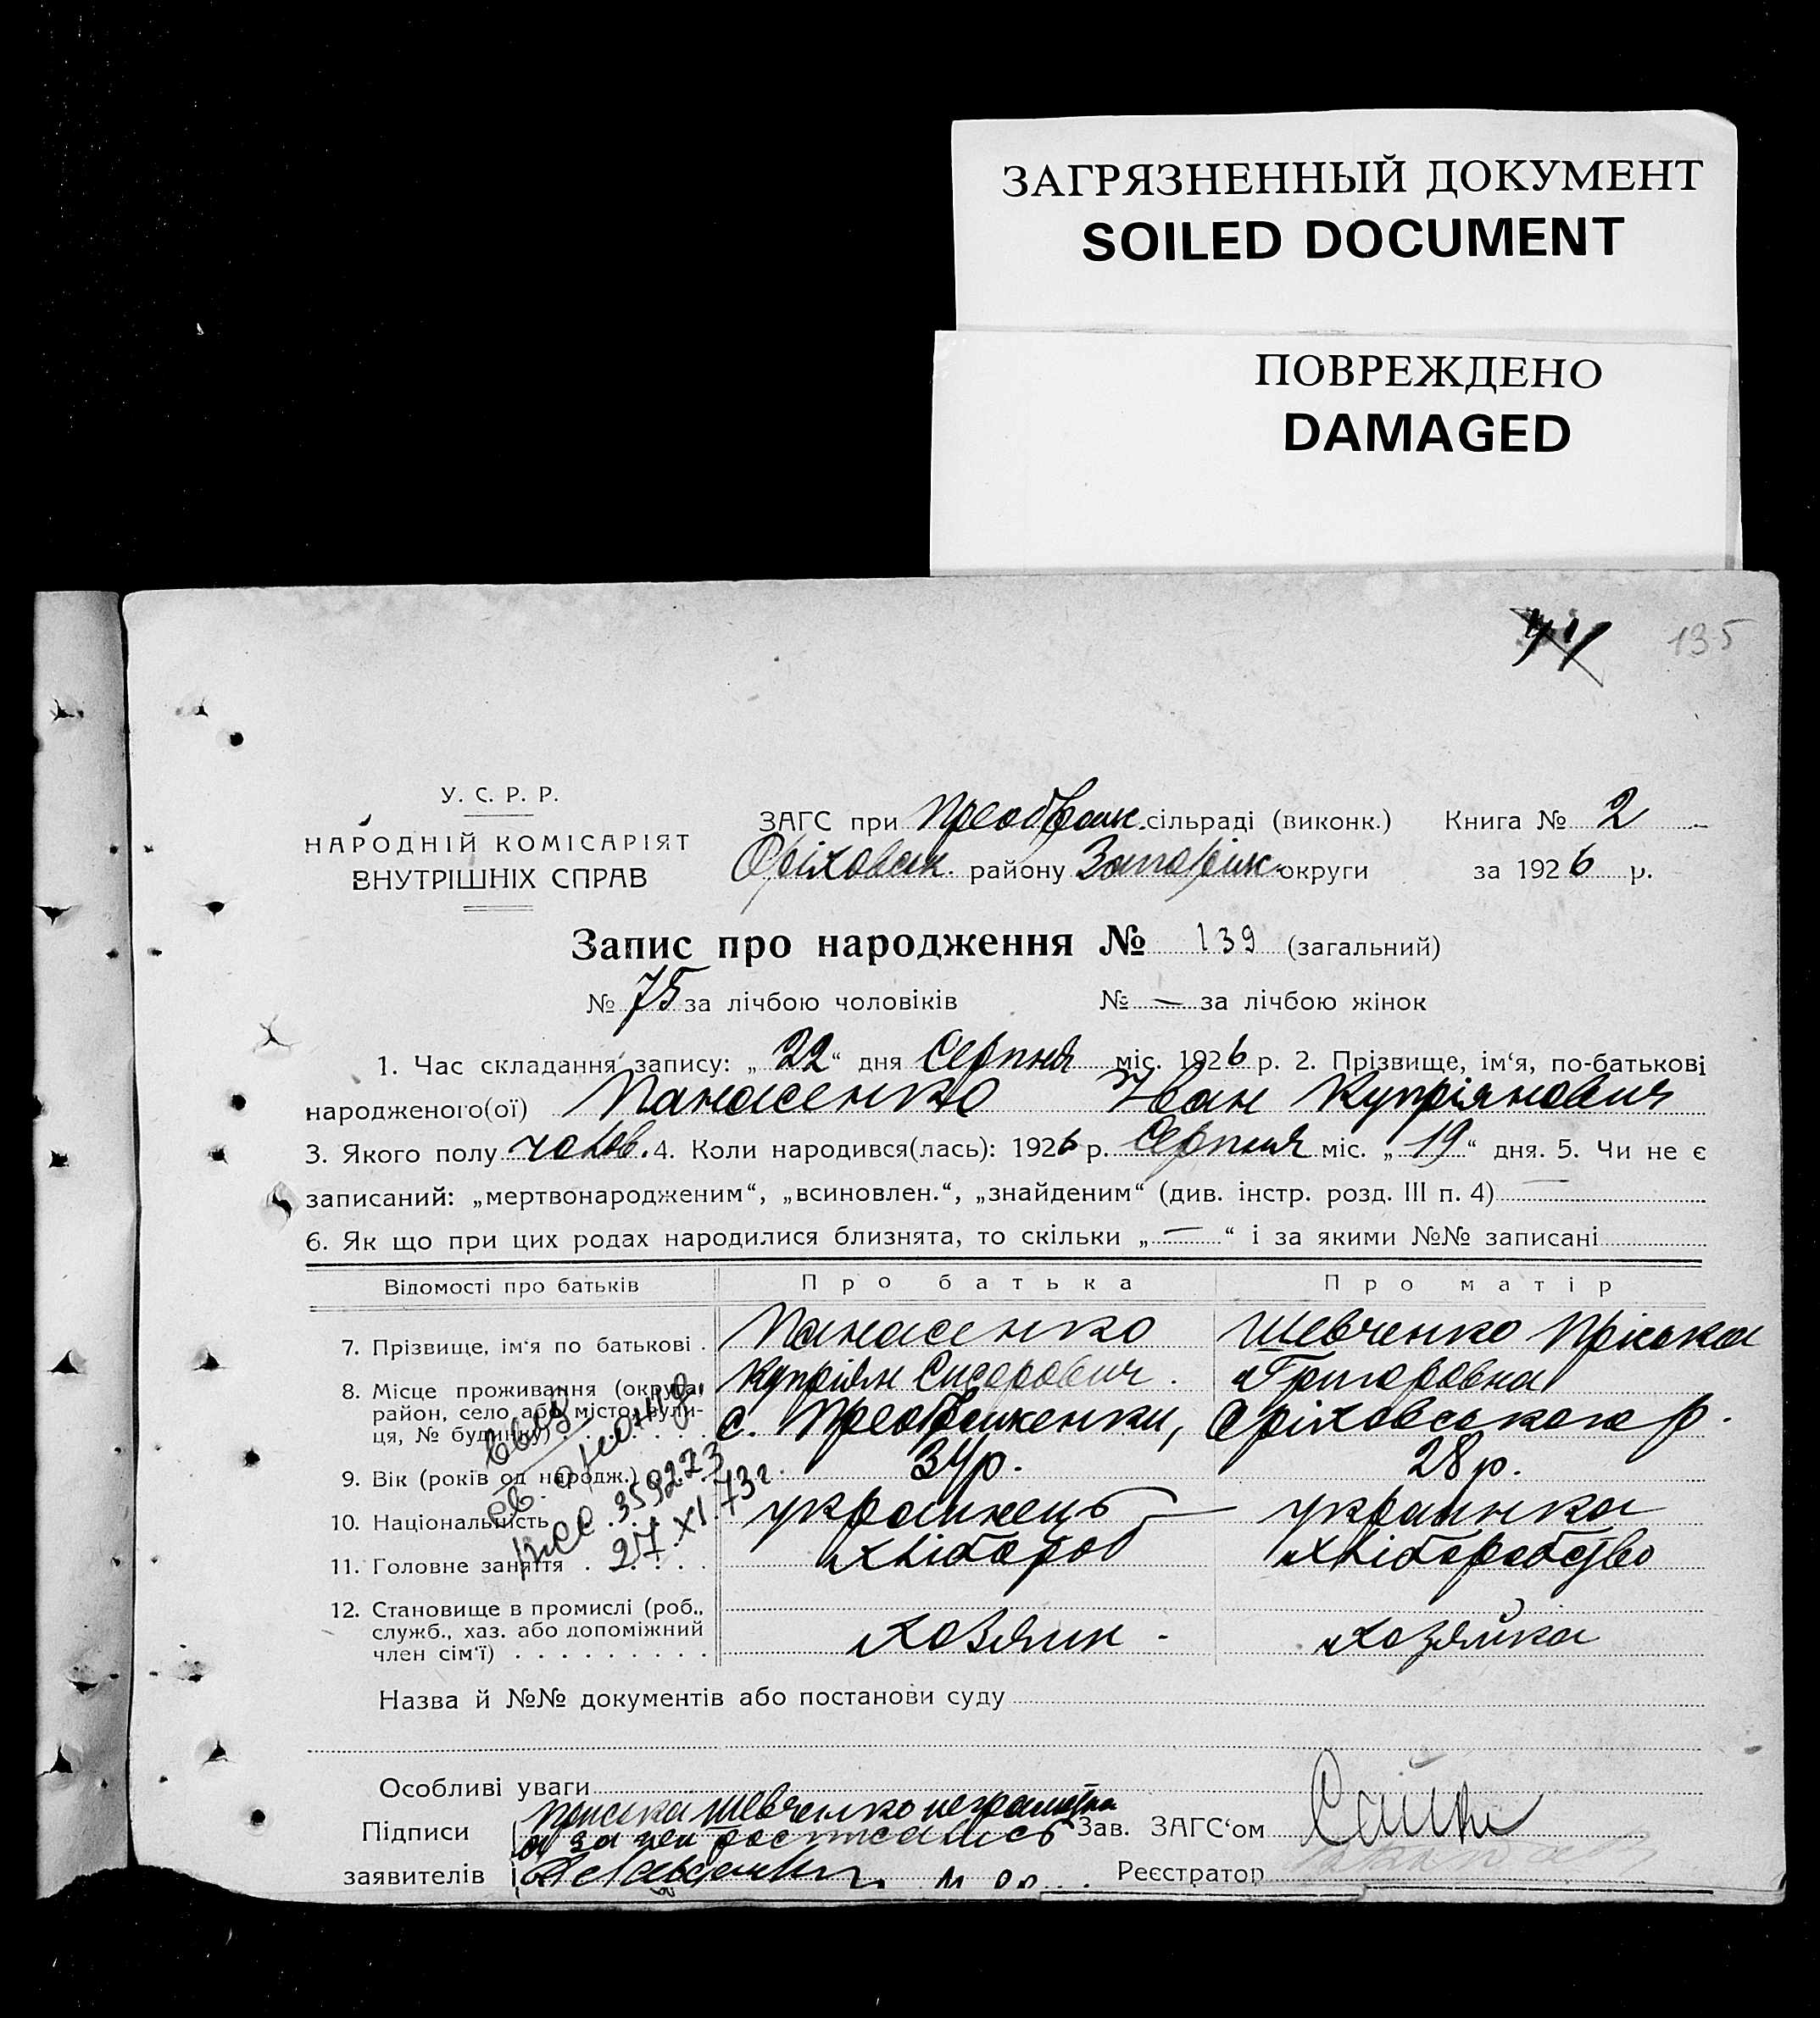 ЗАГРЯЗНЕННЫЙ ДОКУМЕНТ
SOILED DOCUMENT
ПОВРЕЖДЕНО
DAMAGED
135
У. С. Р. Р.
НАРОДНІЙ КОМІСАРІЯТ
ВНУТРІШНІХ СПРАВ
ЗАГС при Преображ. сільраді (виконк.) Книга № 2
Оріховськ. району Запоріж. округи за 1926 р.
Запис про народження № 139 (загальний)
№ 75 за лічбою чоловіків № — за лічбою жінок
1. Час складання запису: „22“ дня Серпня міс. 1926 р. 2. Прізвище, ім‘я, по-батькові
народженого(ої) Панасенко Іван Купріянович
3. Якого полу чолов. 4. Коли народився(лась): 1926 р. Серпня міс. „19“ дня. 5. Чи не є
записаний: „мертвонародженим“, „всиновлен.“, „знайденим“ (див. інстр. розд. III п. 4) —
6. Як що при цих родах народилися близнята, то скільки „—“ і за якими №№ записані
Відомості про батьків Про батька Про матір
7. Прізвище, ім‘я по батькові . Панасенко Шевченко Пріська
Купріян Сидорович . Григоровна
8. Місце проживання (округа,
район, село або місто, вули-
ця, № будинку) с. Преображенки, Оріховського р.
9. Вік (років од народж.) 34 р. 28 р.
10. Національність українець українка
11. Головне заняття хлібороб хліборобство
12. Становище в промислі (роб.,
служб., хаз. або допоміжний
член сім‘ї) хозяин - хозяйка
359273
27.XI.73 г.
Назва й №№ документів або постанови суду
Особливі уваги
Пріська Шевченко неграмотна
Підписи а за неи росписались Зав. ЗАГС‘ом
заявителів Реєстратор